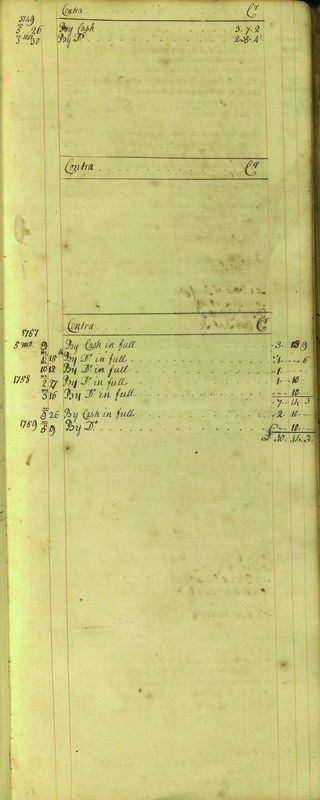 Contra Cr
1749
3 26 By Cash 3. 7. 2
3 30 By Do 2. 5. 4
Contra Cr
1757
Contra Cr
5 mo 9 By Cash in full 3 13 9
15 By Do in full 1 6
10 12 By Do in full 1
1758 2 17 By Do in full 1 10
3 16 By Do in full 10
7 14 3
9 26 By Cash in full 2 10
1759 3 9 By Do 10
10. 14. 3